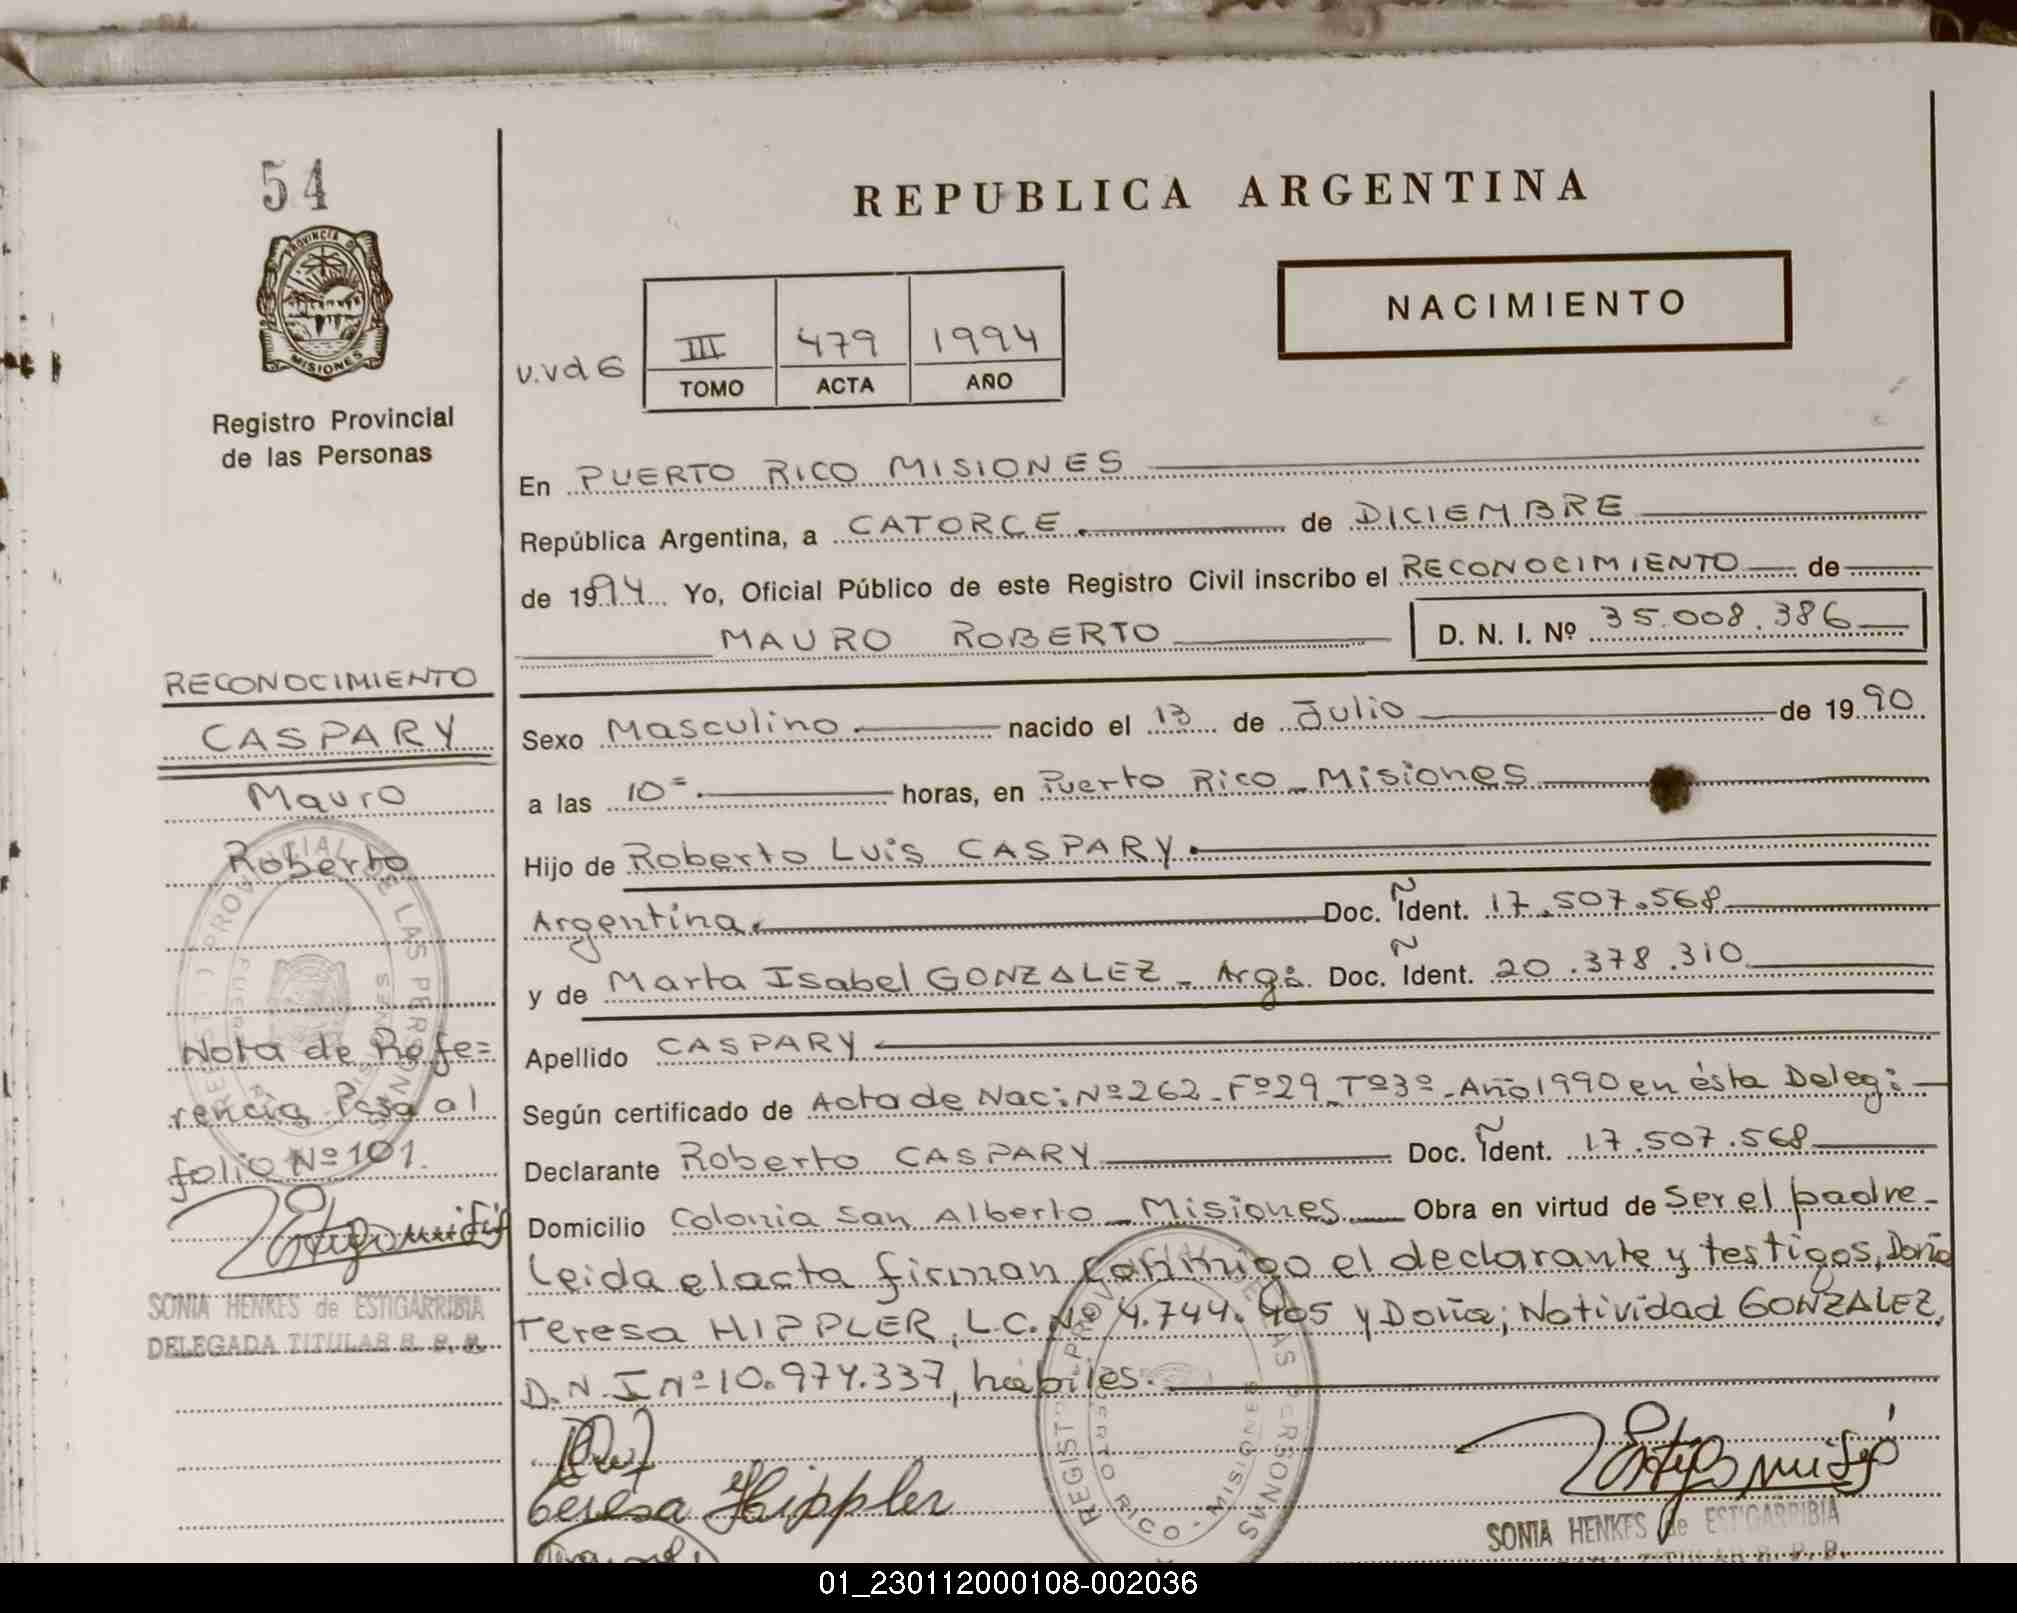 54
PROVINCIA DE
MISIONES
Registro Provincial
de las Personas
REPUBLICA ARGENTINA
NACIMIENTO
v.vd6
III 479 1994
TOMO ACTA AÑO
En PUERTO RICO MISIONES
República Argentina, a CATORCE. de DICIEMBRE
de 1994. Yo, Oficial Público de este Registro Civil inscribo el RECONOCIMIENTO de
MAURO ROBERTO D. N. I. Nº 35.008.386
RECONOCIMIENTO
CASPARY
Mauro
Roberto
Nota de Refe=
rencia Pasa al
folio Nº 101.
SONIA HENKES de ESTIGARRIBIA
DELEGADA TITULAR R. P. P.
Sexo Masculino. nacido el 13 de Julio de 1990
a las 10=. horas, en Puerto Rico - Misiones
Hijo de Roberto Luis CASPARY.
Argentina. Doc. Ñ Ident. 17.507.568
y de Marta Isabel GONZALEZ - Arg: Doc. Ñ Ident. 20.378.310
Apellido CASPARY
Según certificado de Acta de Nac: Nº 262 - Fº 29 - Tº 3º - Año 1990 en ésta Deleg:
Declarante Roberto CASPARY Doc. Ñ Ident. 17.507.568
Domicilio Colonia San Alberto - Misiones Obra en virtud de Ser el padre -
Leida el acta firman conmigo el declarante y testigos, Doña
Teresa HIPPLER, L.C. Nº 4.744.405 y Doña; Natividad GONZALEZ,
D.N.I Nº 10.974.337, hábiles.
Teresa Hippler
PUERTO RICO - MISIONES
SONIA HENKES de ESTIGARRIBIA
TITULAR R. P. P.
01_230112000108-002036